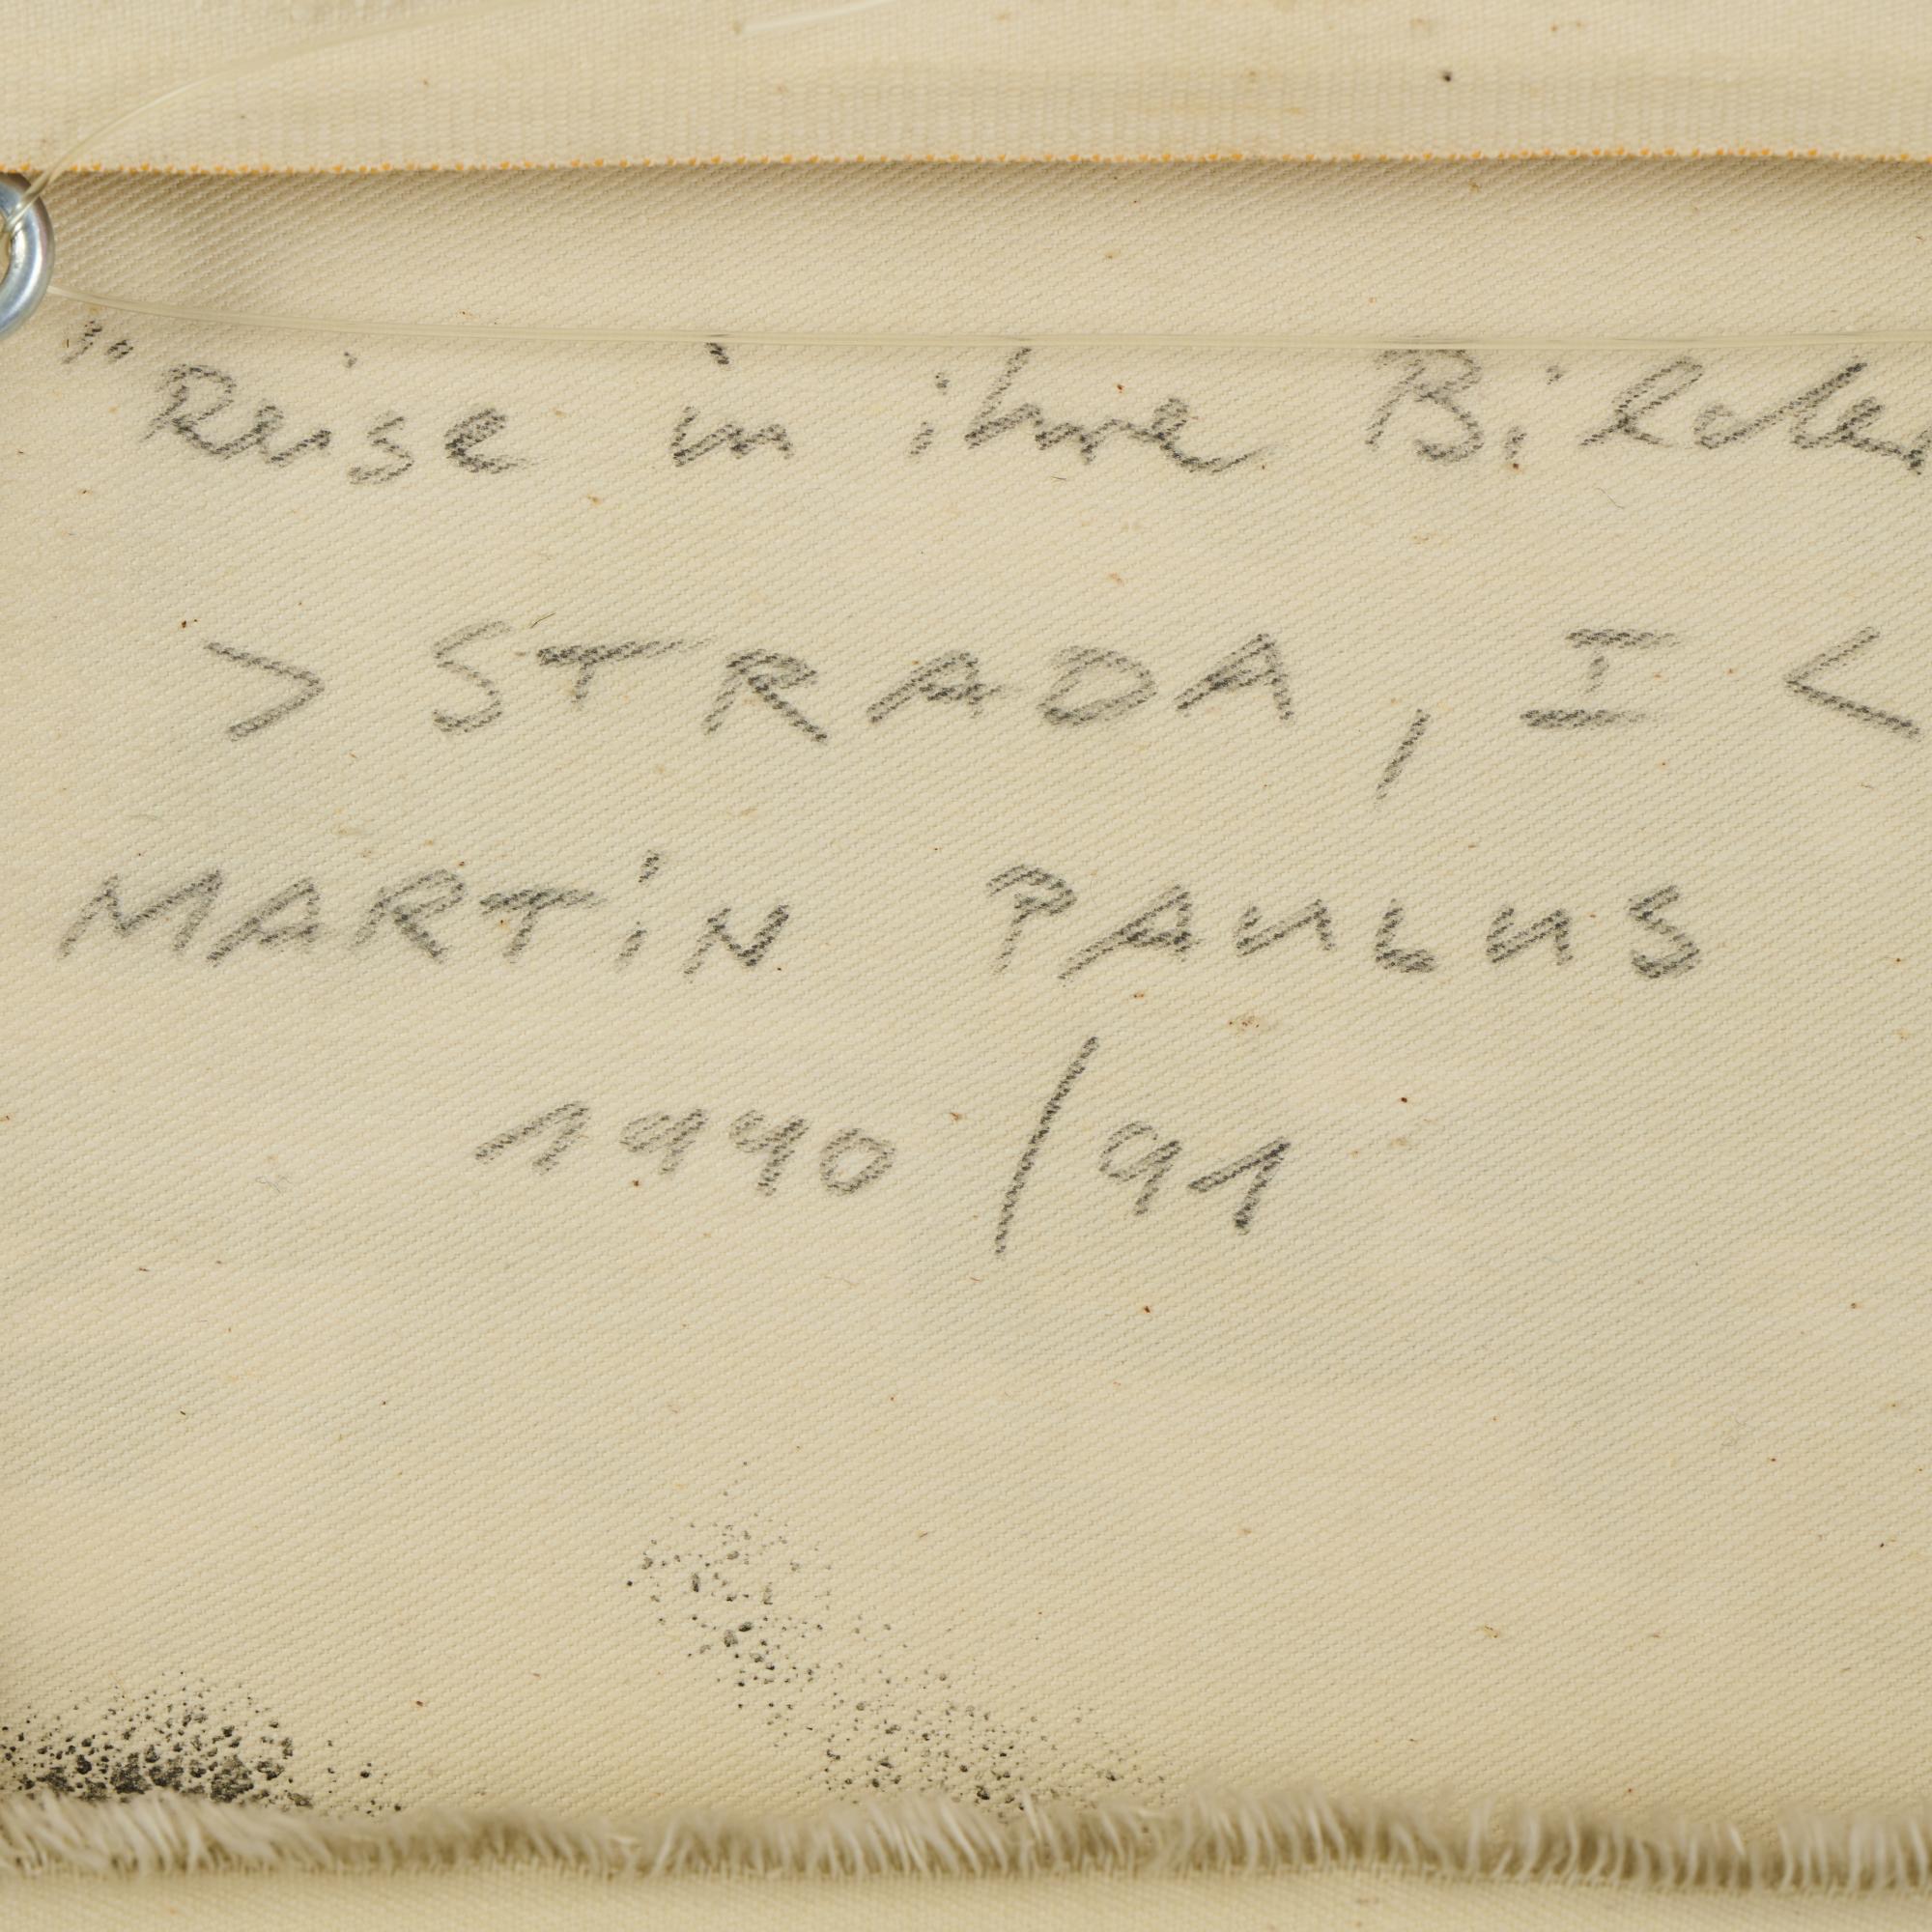 "Reise in ihre Bilder
> STRADA, I <
MARTiN PAULUS
1990/91